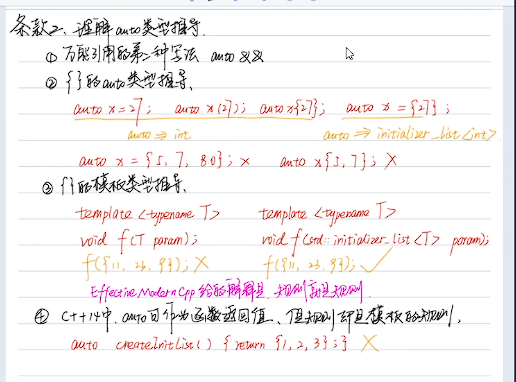 条款二、理解auto类型推导.
① 万能引用的第二种写法 auto &&
② {}的auto类型推导、
auto x = 27; auto x(27); auto x{27}; auto x = {27};
auto ⇒ int auto ⇒ initializer_list<int>
auto x = {5, 7, 8.0}; × auto x{5, 7}; ×
③ {}的模板类型推导、
template <typename T> template <typename T>
void f(T param); void f(std::initializer_list<T> param);
f({11, 23, 9}); × f({11, 23, 9}); ✓
Effective Modern Cpp 给的解释是、规则就是规则
④ C++14中、auto可作为函数返回值、但规则却是模板的规则.
auto createInitList() { return {1, 2, 3}; } ×